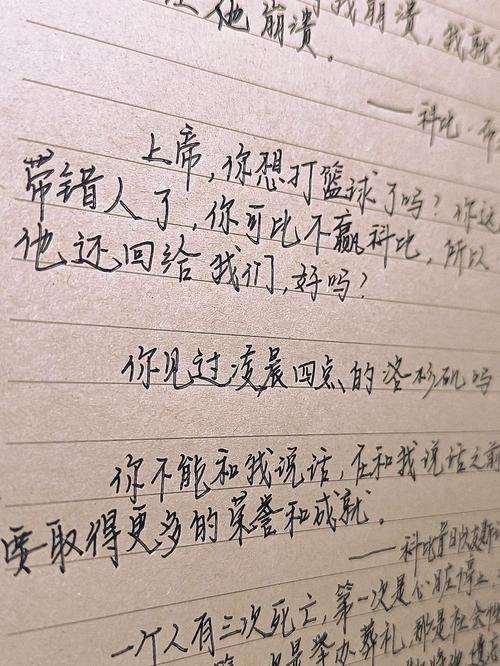 他崩溃。 我崩溃，我就
——科比·布
上帝，你想打篮球了吗？你这
带错人了，你可比不赢科比，所以
他还回给我们，好吗？
你见过凌晨四点的洛杉矶吗
你不能和我说话，在和我说话之前
要取得更多的荣誉和成就。
——科比昔日
一个人有三次死亡，第一次是心脏停止
是举办葬礼，那是社会性